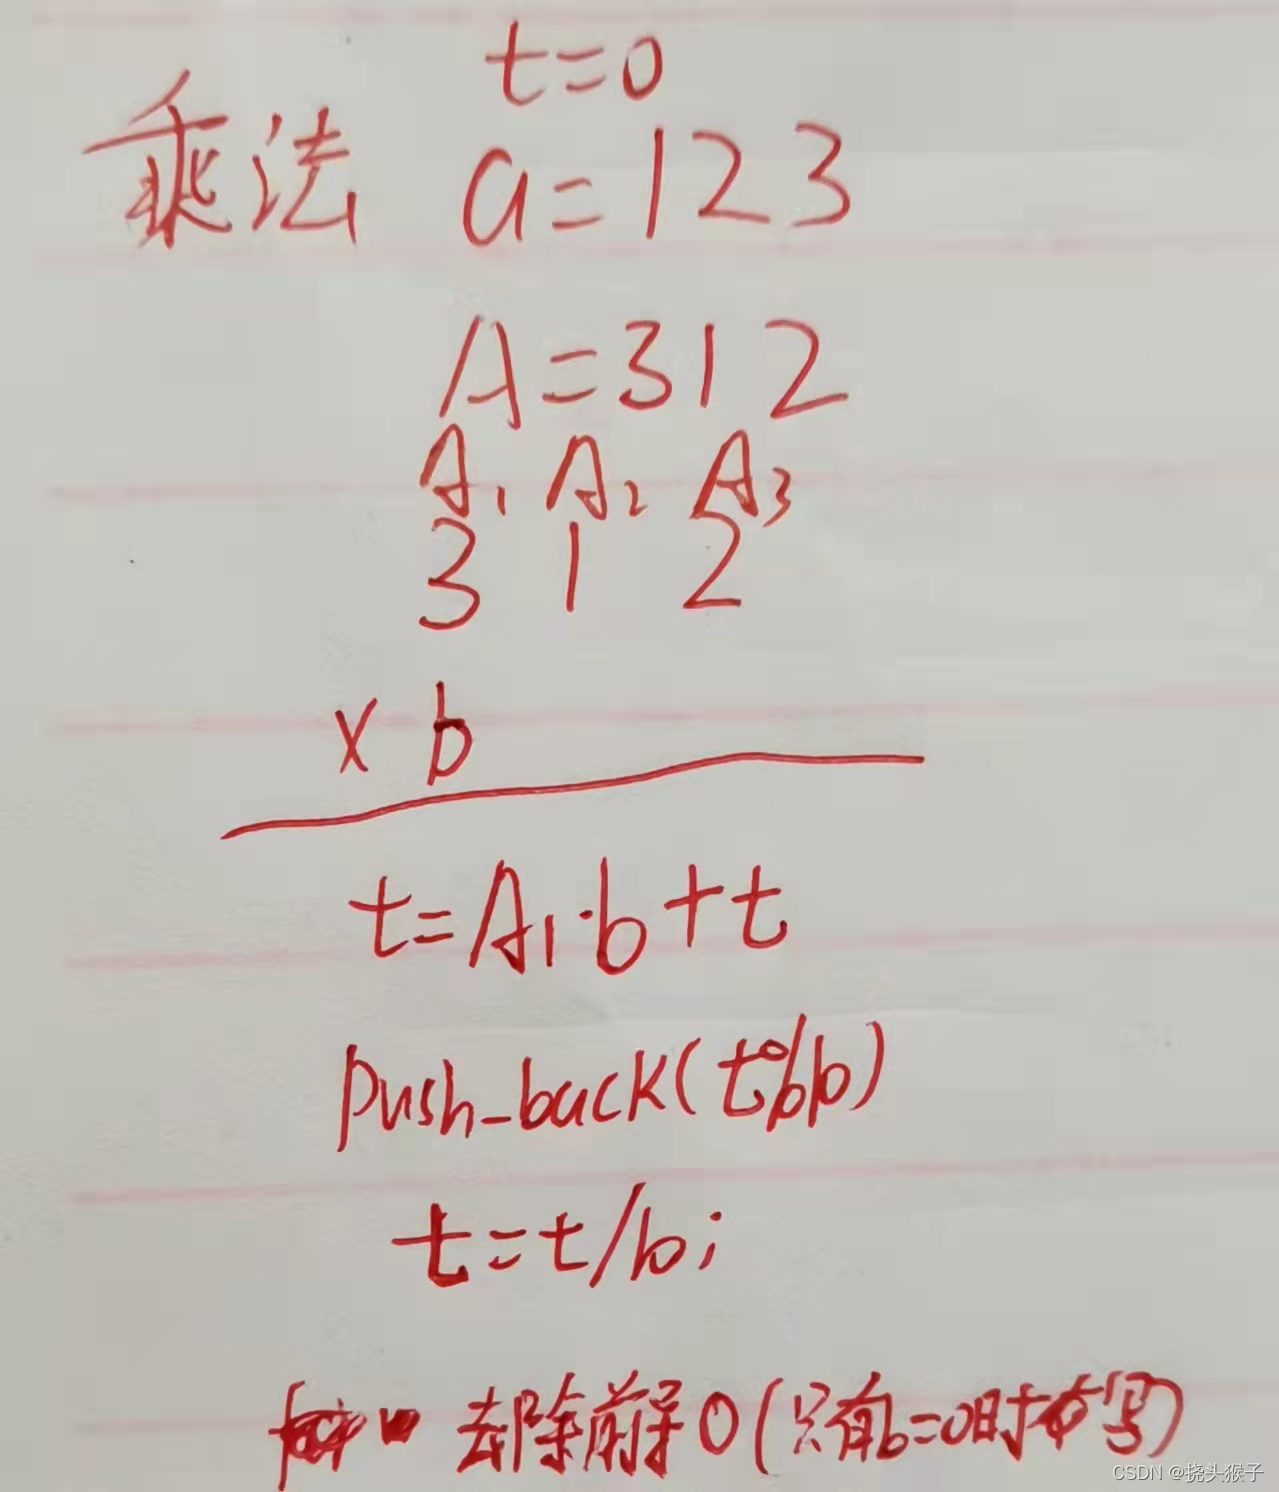 t=0
乘法 a=123
A=312
A₁ A₂ A₃
3 1 2
× b
t=A₁·b+t
push_back(t%b)
t=t/b;
去除前导0(只有b=0时才写)
CSDN @挠头猴子